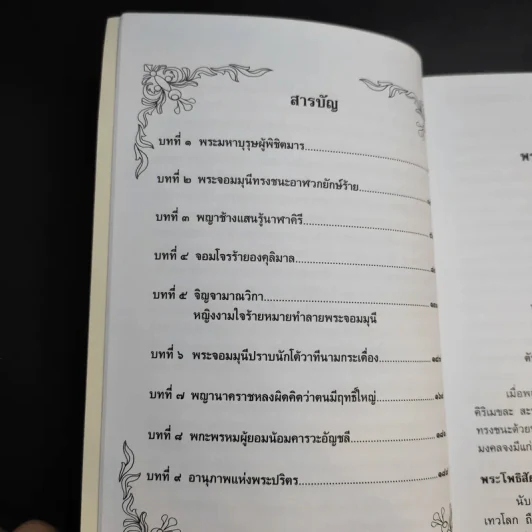 สารบัญ
บทที่ ๑ พระมหาบุรุษผู้พิชิตมาร
บทที่ ๒ พระจอมมุนีทรงชนะอาฬวกยักษ์ร้าย
บทที่ ๓ พญาช้างแสนรู้นาฬาคิรี
บทที่ ๔ จอมโจรร้ายองคุลิมาล
บทที่ ๕ จิญจามาณวิกา
หญิงงามใจร้ายหมายทำลายพระจอมมุนี
บทที่ ๖ พระจอมมุนีปราบนักโต้วาทีนามกระเดื่อง
บทที่ ๗ พญานาคราชหลงผิดคิดว่าตนมีฤทธิ์ใหญ่
บทที่ ๘ พกะพรหมผู้ยอมน้อมคารวะอัญชลี
บทที่ ๙ อานุภาพแห่งพระปริตร
เมื่อพ
คิริเมขละ สะ
ทรงชนะด้วย
มงคลจงมีแก่
พระโพธิสัต
นับ
เทวโลก ถึ